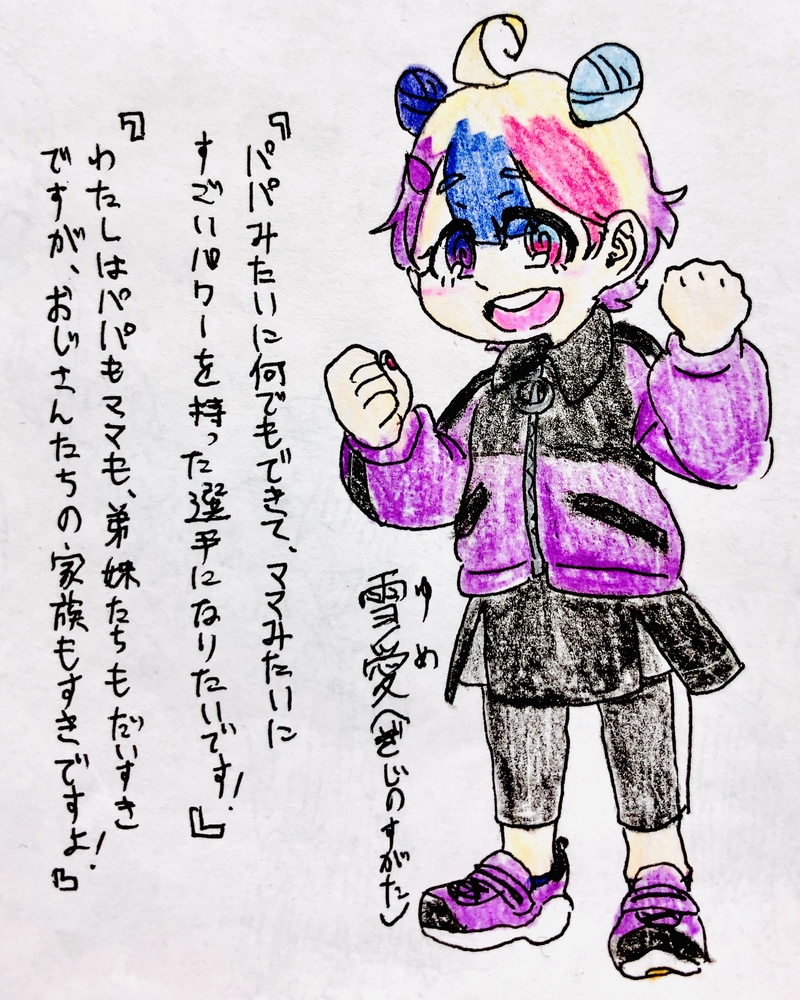 『パパみたいに何でもできて、ママみたいに
すごいパワーを持った選手になりたいです!』
『わたしはパパもママも、弟妹たちもだいすき
ですが、おじさんたちの家族もすきですよ!』
雪愛
ゆめ
(ぎじのすがた)